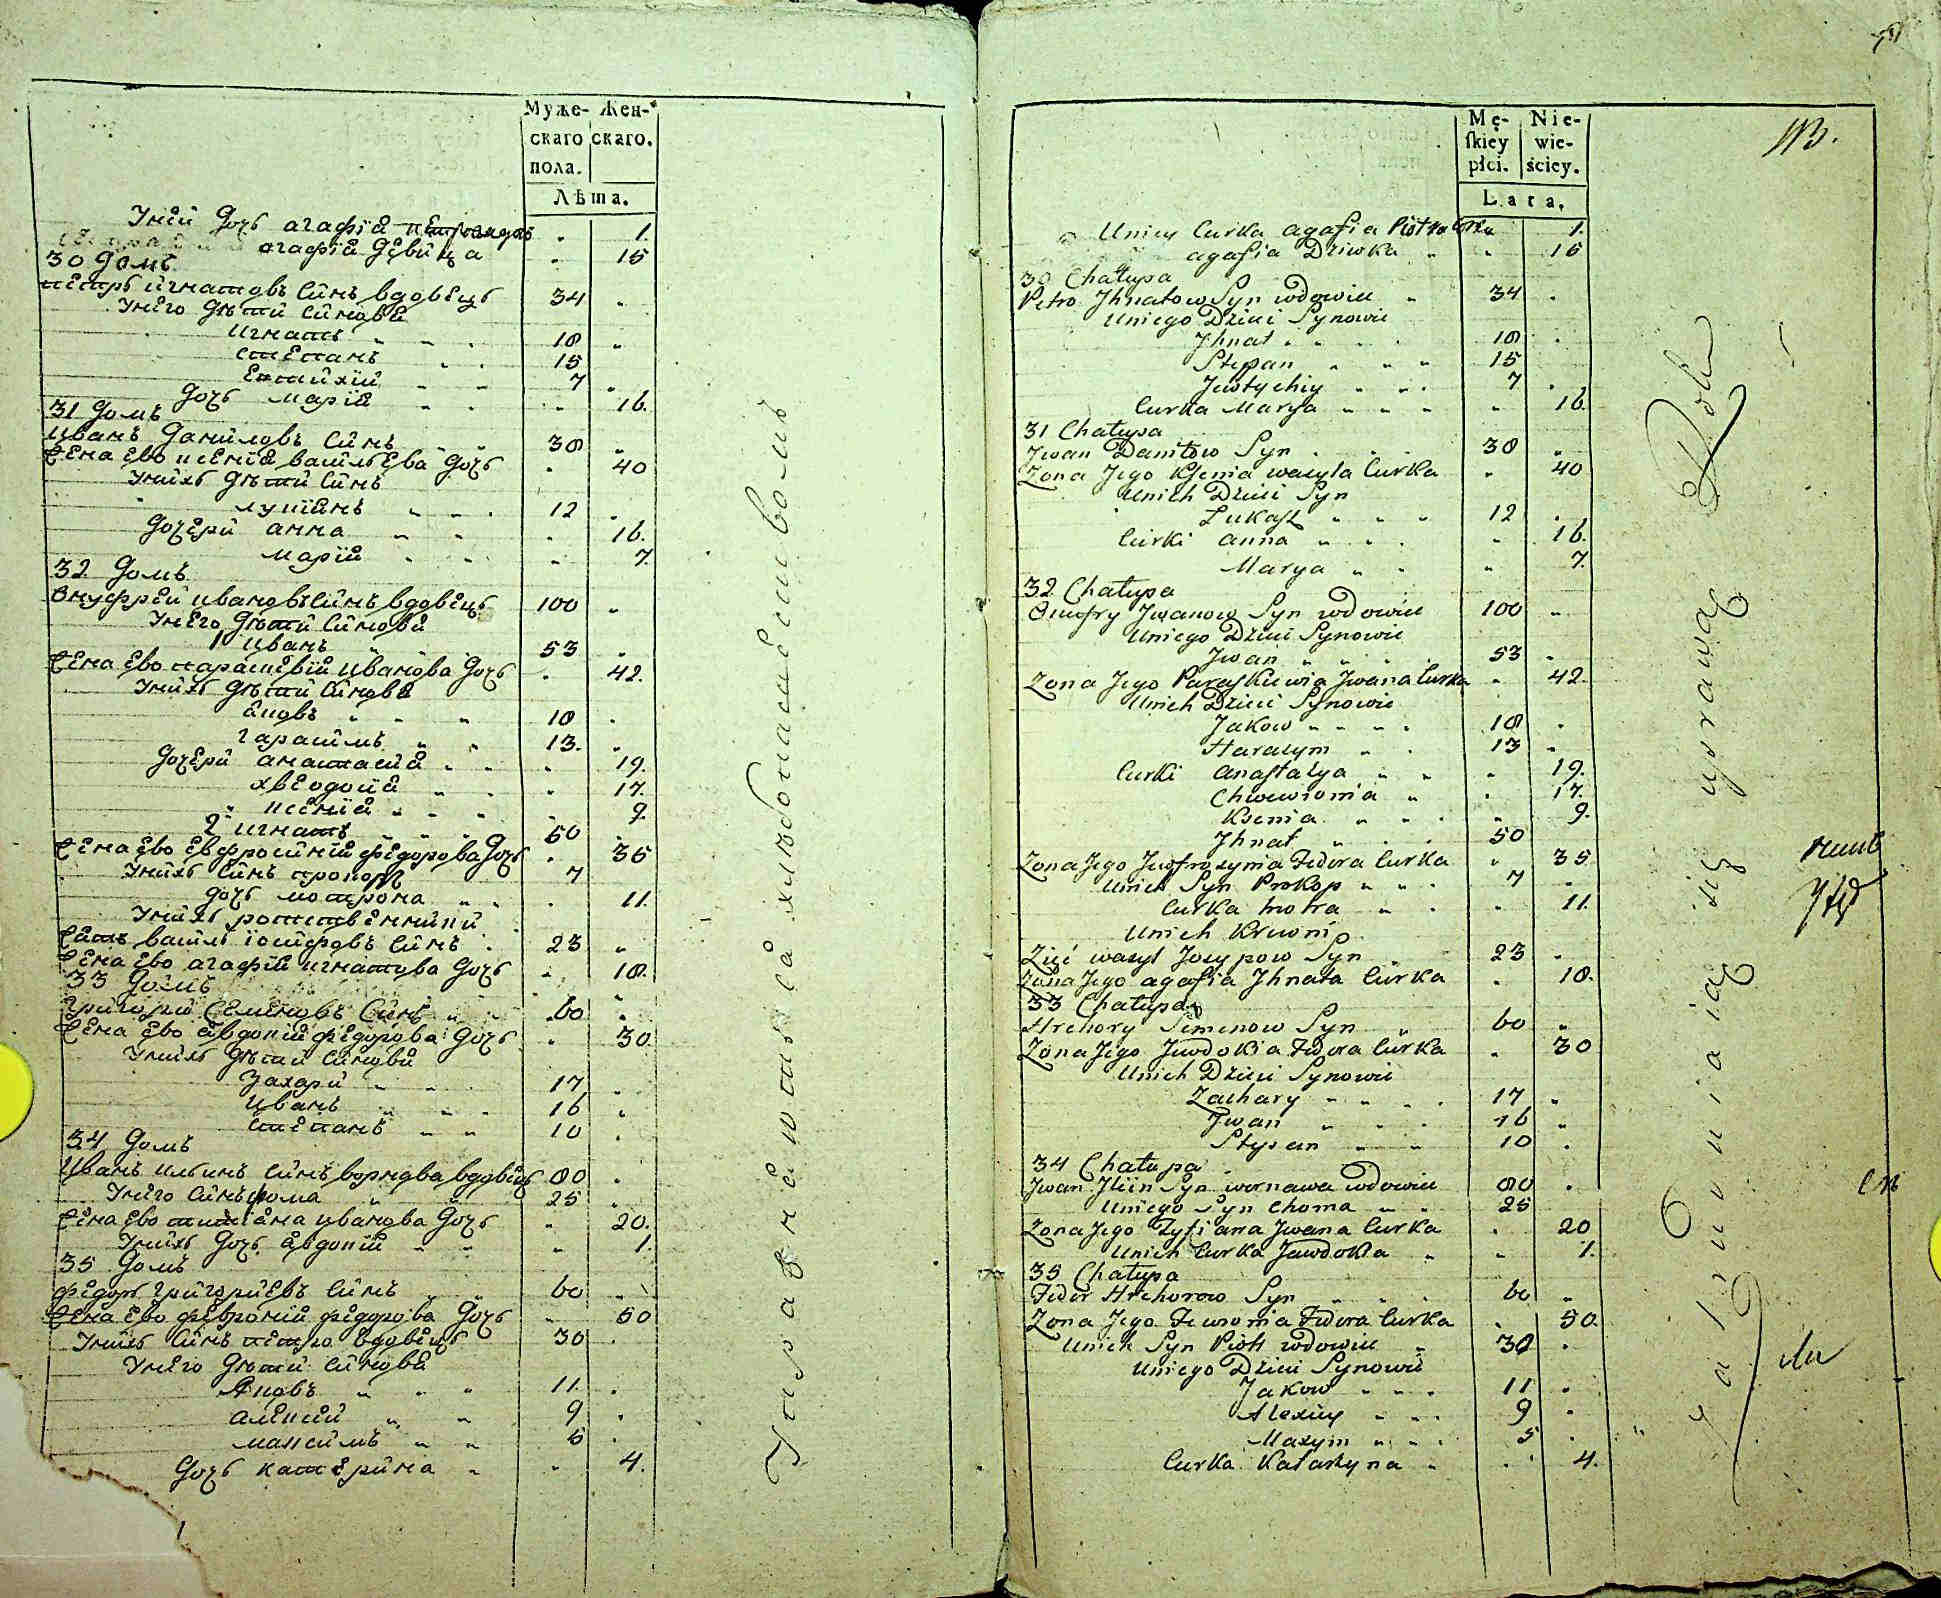 Муже-
скаго
пола.
Жен-
скаго.
Лѣта.
Уней Дочь агафія 1.
агафія Девица 15
30 Домъ
петръ игнатовъ Синъ вдовецъ 34
Унего Дѣти Синове
игнатъ 18
степанъ 15
Евтихий 7
Дочь мария 16.
31 Домъ
иванъ даниловъ Синъ 38
Жена Ево ксения василъева Дочь 40
Унихъ Дѣти Синъ
лукианъ 12
Дочери анна 16.
Мария 7.
32 Домъ
Онуфрей ивановъ Синъ вдовецъ 100
Унего Дѣти Синове
1 иванъ 53
Жена Ево параскевия иванова Дочь 42.
Унихъ Дѣти Синове
яковъ 18
гарасимъ 13.
Дочери анастасия 19.
хведория 17.
ксения 9.
2 игнатъ 50
Жена Ево Евфросиния федорова Дочь 35
Унихъ Синъ прокопъ 7
Дочь мотрона 11.
Унихъ родственники
Зять василъ иосифовъ Синъ 23
Жена Ево агафия игнатова Дочь 18.
33 Домъ
Григорий Семеновъ Синъ 60
Жена Ево Явдокия федорова Дочь 30
Унихъ Дѣти Синове
Захарий 17
иванъ 16
Степанъ 10
34 Домъ
Иванъ илъинъ Синъ ворнава вдовецъ 80
Унего Синъ фома 25
Жена Ево татиана иванова Дочь 20.
Унихъ Дочь Явдокия 1.
35 Домъ
федоръ григориевъ Синъ 60
Жена Ево феврония федорова Дочь 50
Унихъ Синъ петро вдовецъ 30
Унего Дѣти Синове
Яковъ 11.
алексий 9
максимъ 5
Дочь катерина 4.
Męskiey płci.
Niewieściey.
Lata.
113.
Uniey Curka agafia 1.
agafia Dziwka 15
30 Chałupa
Petro Jhnatow Syn wdowiec 34
Uniego Dzieci Synowie
Jhnat 18
Stepan 15
Jewtychiy 7
Curka Marya 16.
31 Chałupa
Jwan Daniłow Syn 38
Zona Jego Ksenia wasyla Curka 40
Unich Dzieci Syn
Łukasz 12
Curki anna 16.
Marya 7.
32 Chałupa
Onufry Jwanow Syn wdowiec 100
Uniego Dzieci Synowie
Jwan 53
Zona Jego Paraskiewia Jwana Curka 42.
Unich Dzieci Synowie
Jakow 18
Harasym 13
Curki anastasya 19.
17.
Ksenia 9.
Jhnat 50
Zona Jego Jewfrosynia Fedora Curka 35
Unich Syn Prokop 7
Curka motra 11.
Unich Krewni
Zięć wasyl Josypow Syn 23
Zona Jego agafia Jhnata Curka 18.
33 Chałupa
Hrehory Semenow Syn 60
Zona Jego Jewdokia Fedora Curka 30
Unich Dzieci Synowie
Zachary 17
Jwan 16
Stepan 10
34 Chałupa
Jwan Jliin Syn wornawa wdowiec 80
Uniego Syn Choma 25
Zona Jego Tytiana Jwana Curka 20
Unich Curka Jawdokia 1.
35 Chałupa
Fedor Hrehorow Syn 60
Zona Jego Fewronia Fedora Curka 50.
Unich Syn Piotr wdowiec 30
Uniego Dzieci Synowie
Jakow 11
Alexiey 9
Maxym 5
Curka Katarzyna 4.